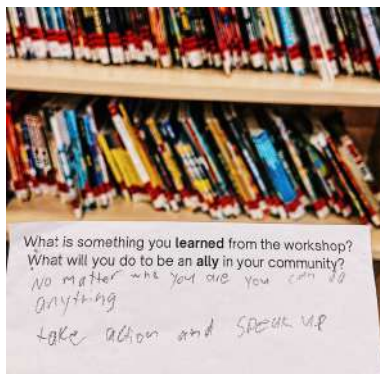 What is something you learned from the workshop?
What will you do to be an ally in your community?
No matter who you are you can do
anything
take action and speak up